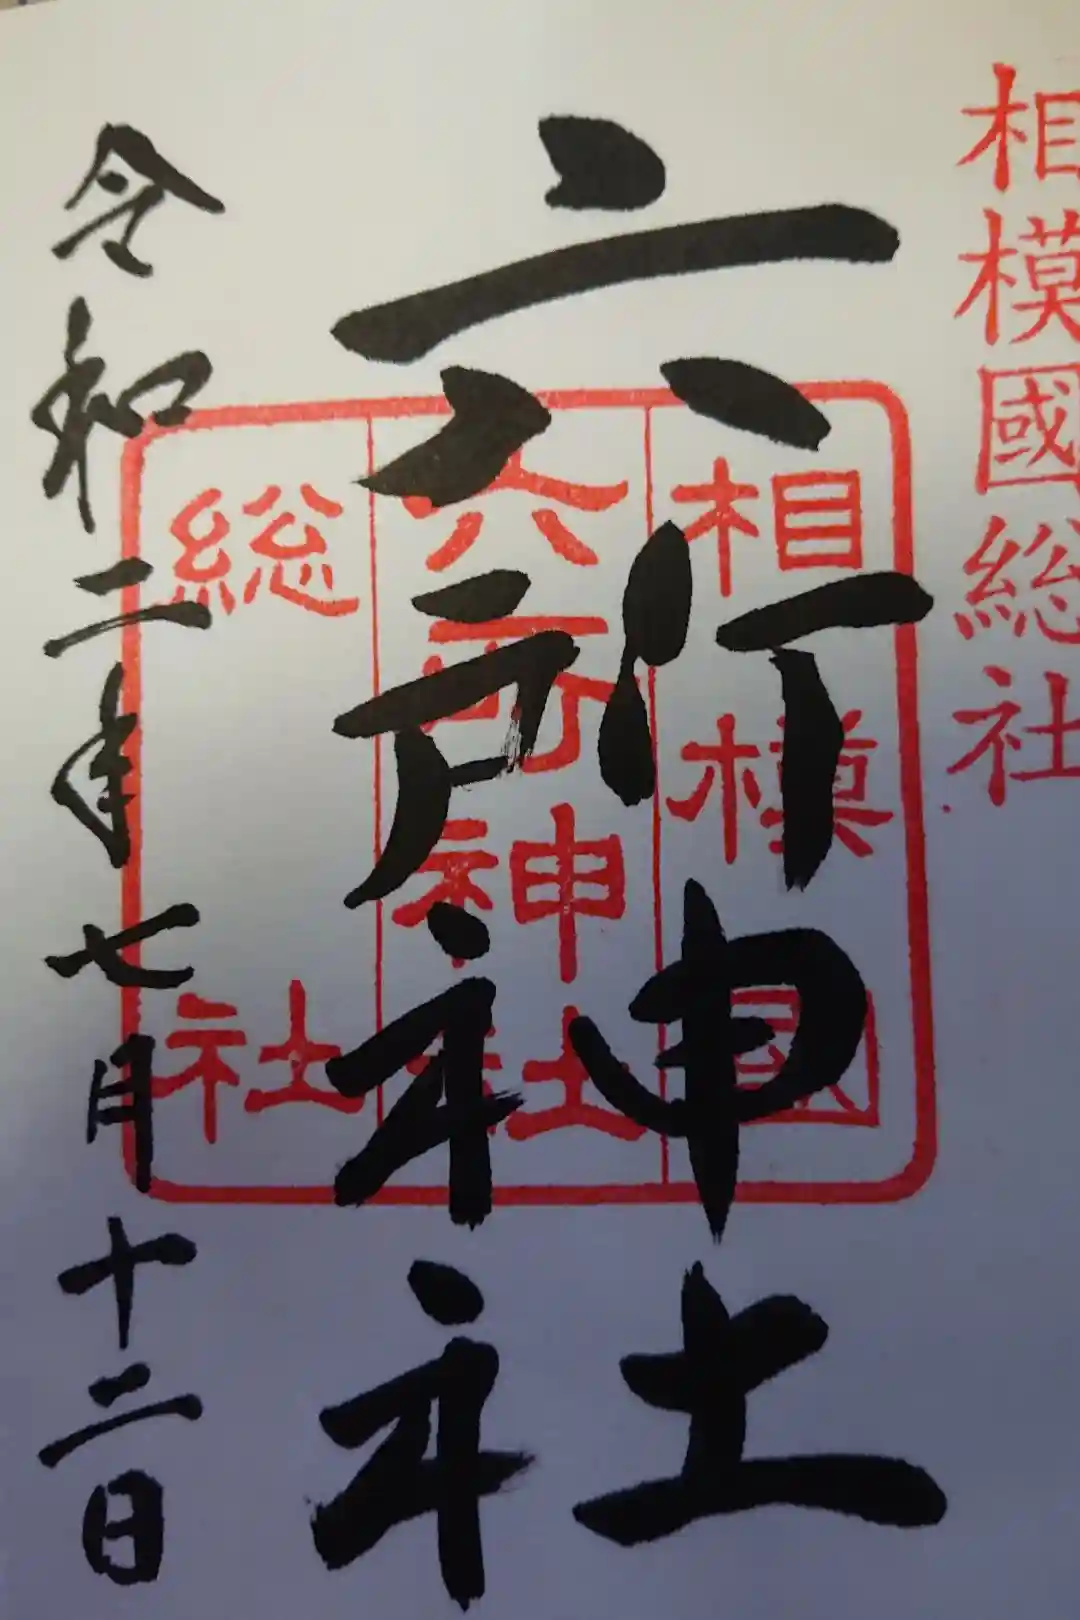 相模國総社
六所神社
相模國
六所神社
総社
令和二年七月十二日